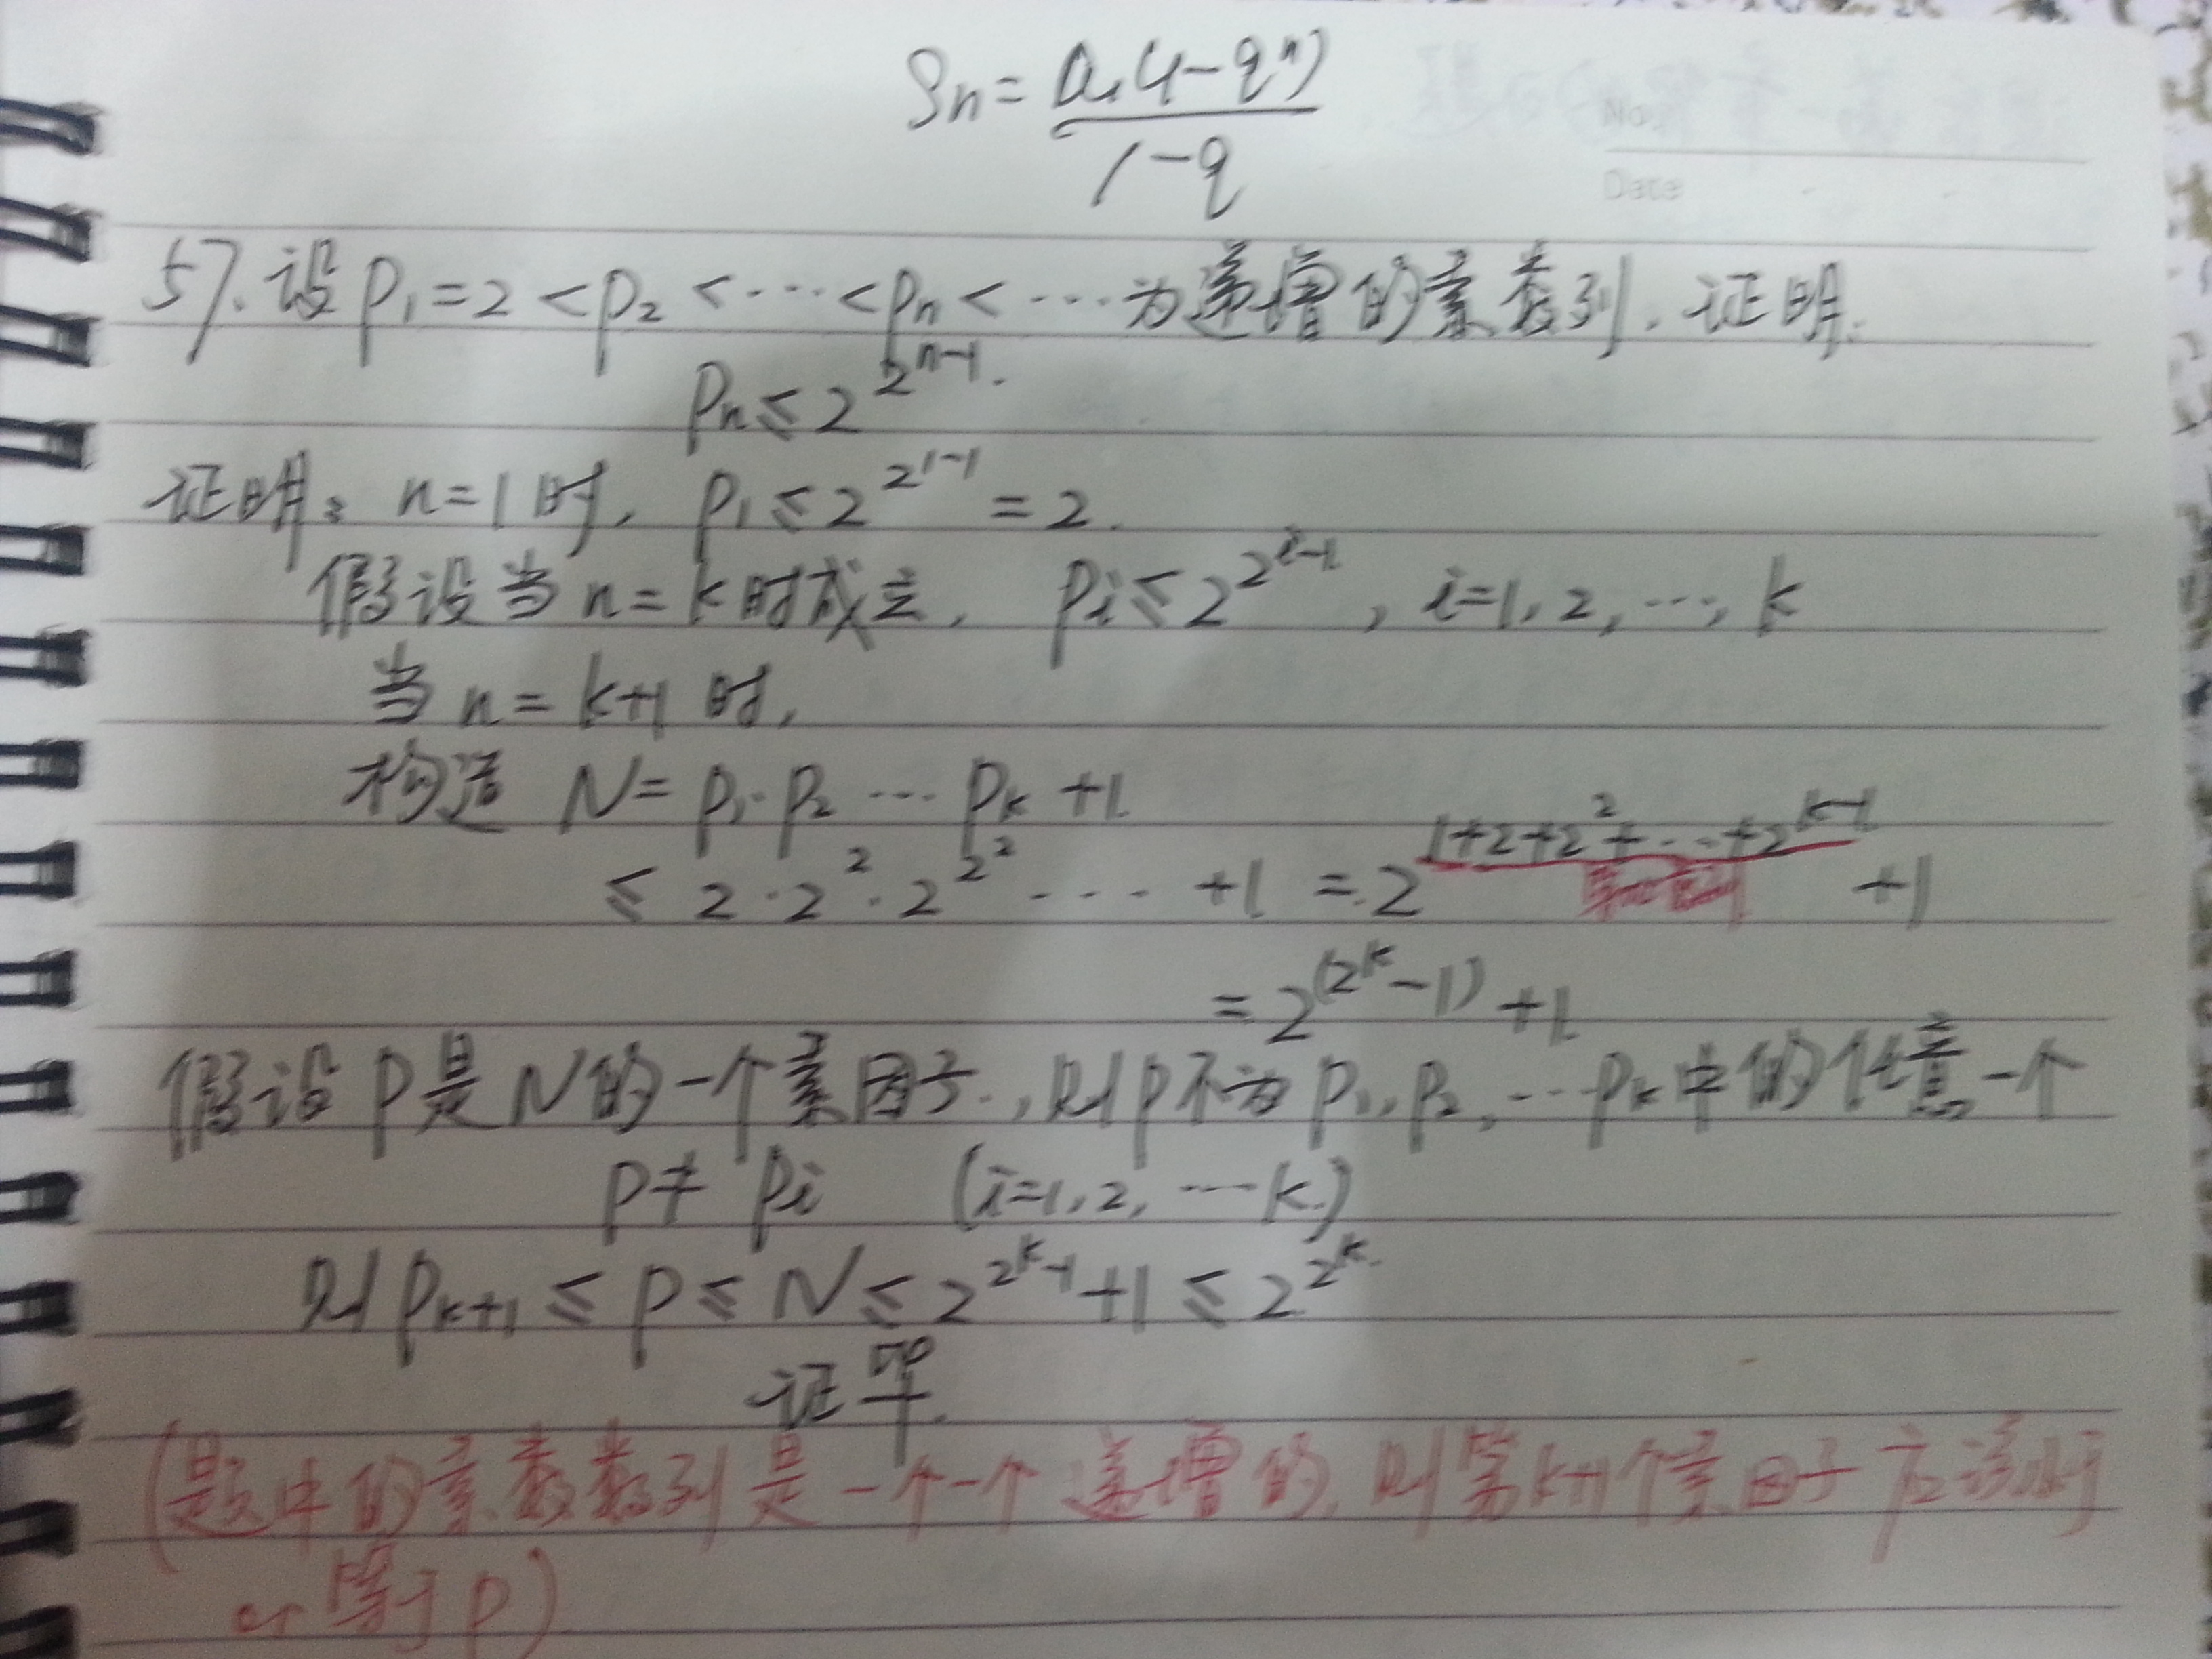 Sn = a₁(1-qⁿ) / 1-q
No.
Date
57. 设 p₁=2<p₂<⋯<pₙ<⋯为递增的素数列. 证明:
pₙ ≤ 2^(2^(n-1)).
证明: n=1时, p₁ ≤ 2^(2^(1-1)) = 2.
假设当 n=k时成立, pᵢ ≤ 2^(2^(i-1)), i=1, 2, ⋯, k
当 n=k+1 时,
构造 N = p₁·p₂ ⋯ pₖ +1
≤ 2·2^2·2^(2^2) ⋯ +1 = 2^(1+2+2^2+⋯+2^(k-1)) +1
等比数列
= 2^(2^k-1) +1
假设 p是N的一个素因子., 则p不为p₁, p₂, ⋯pₖ中的任意一个
p ≠ pᵢ (i=1, 2, ⋯k.)
则 pₖ₊₁ ≤ p ≤ N ≤ 2^(2^k-1)+1 ≤ 2^(2^k).
证毕.
(题中的素数数列是一个一个递增的, 则第k+1个素因子应该小于
or 等于p)